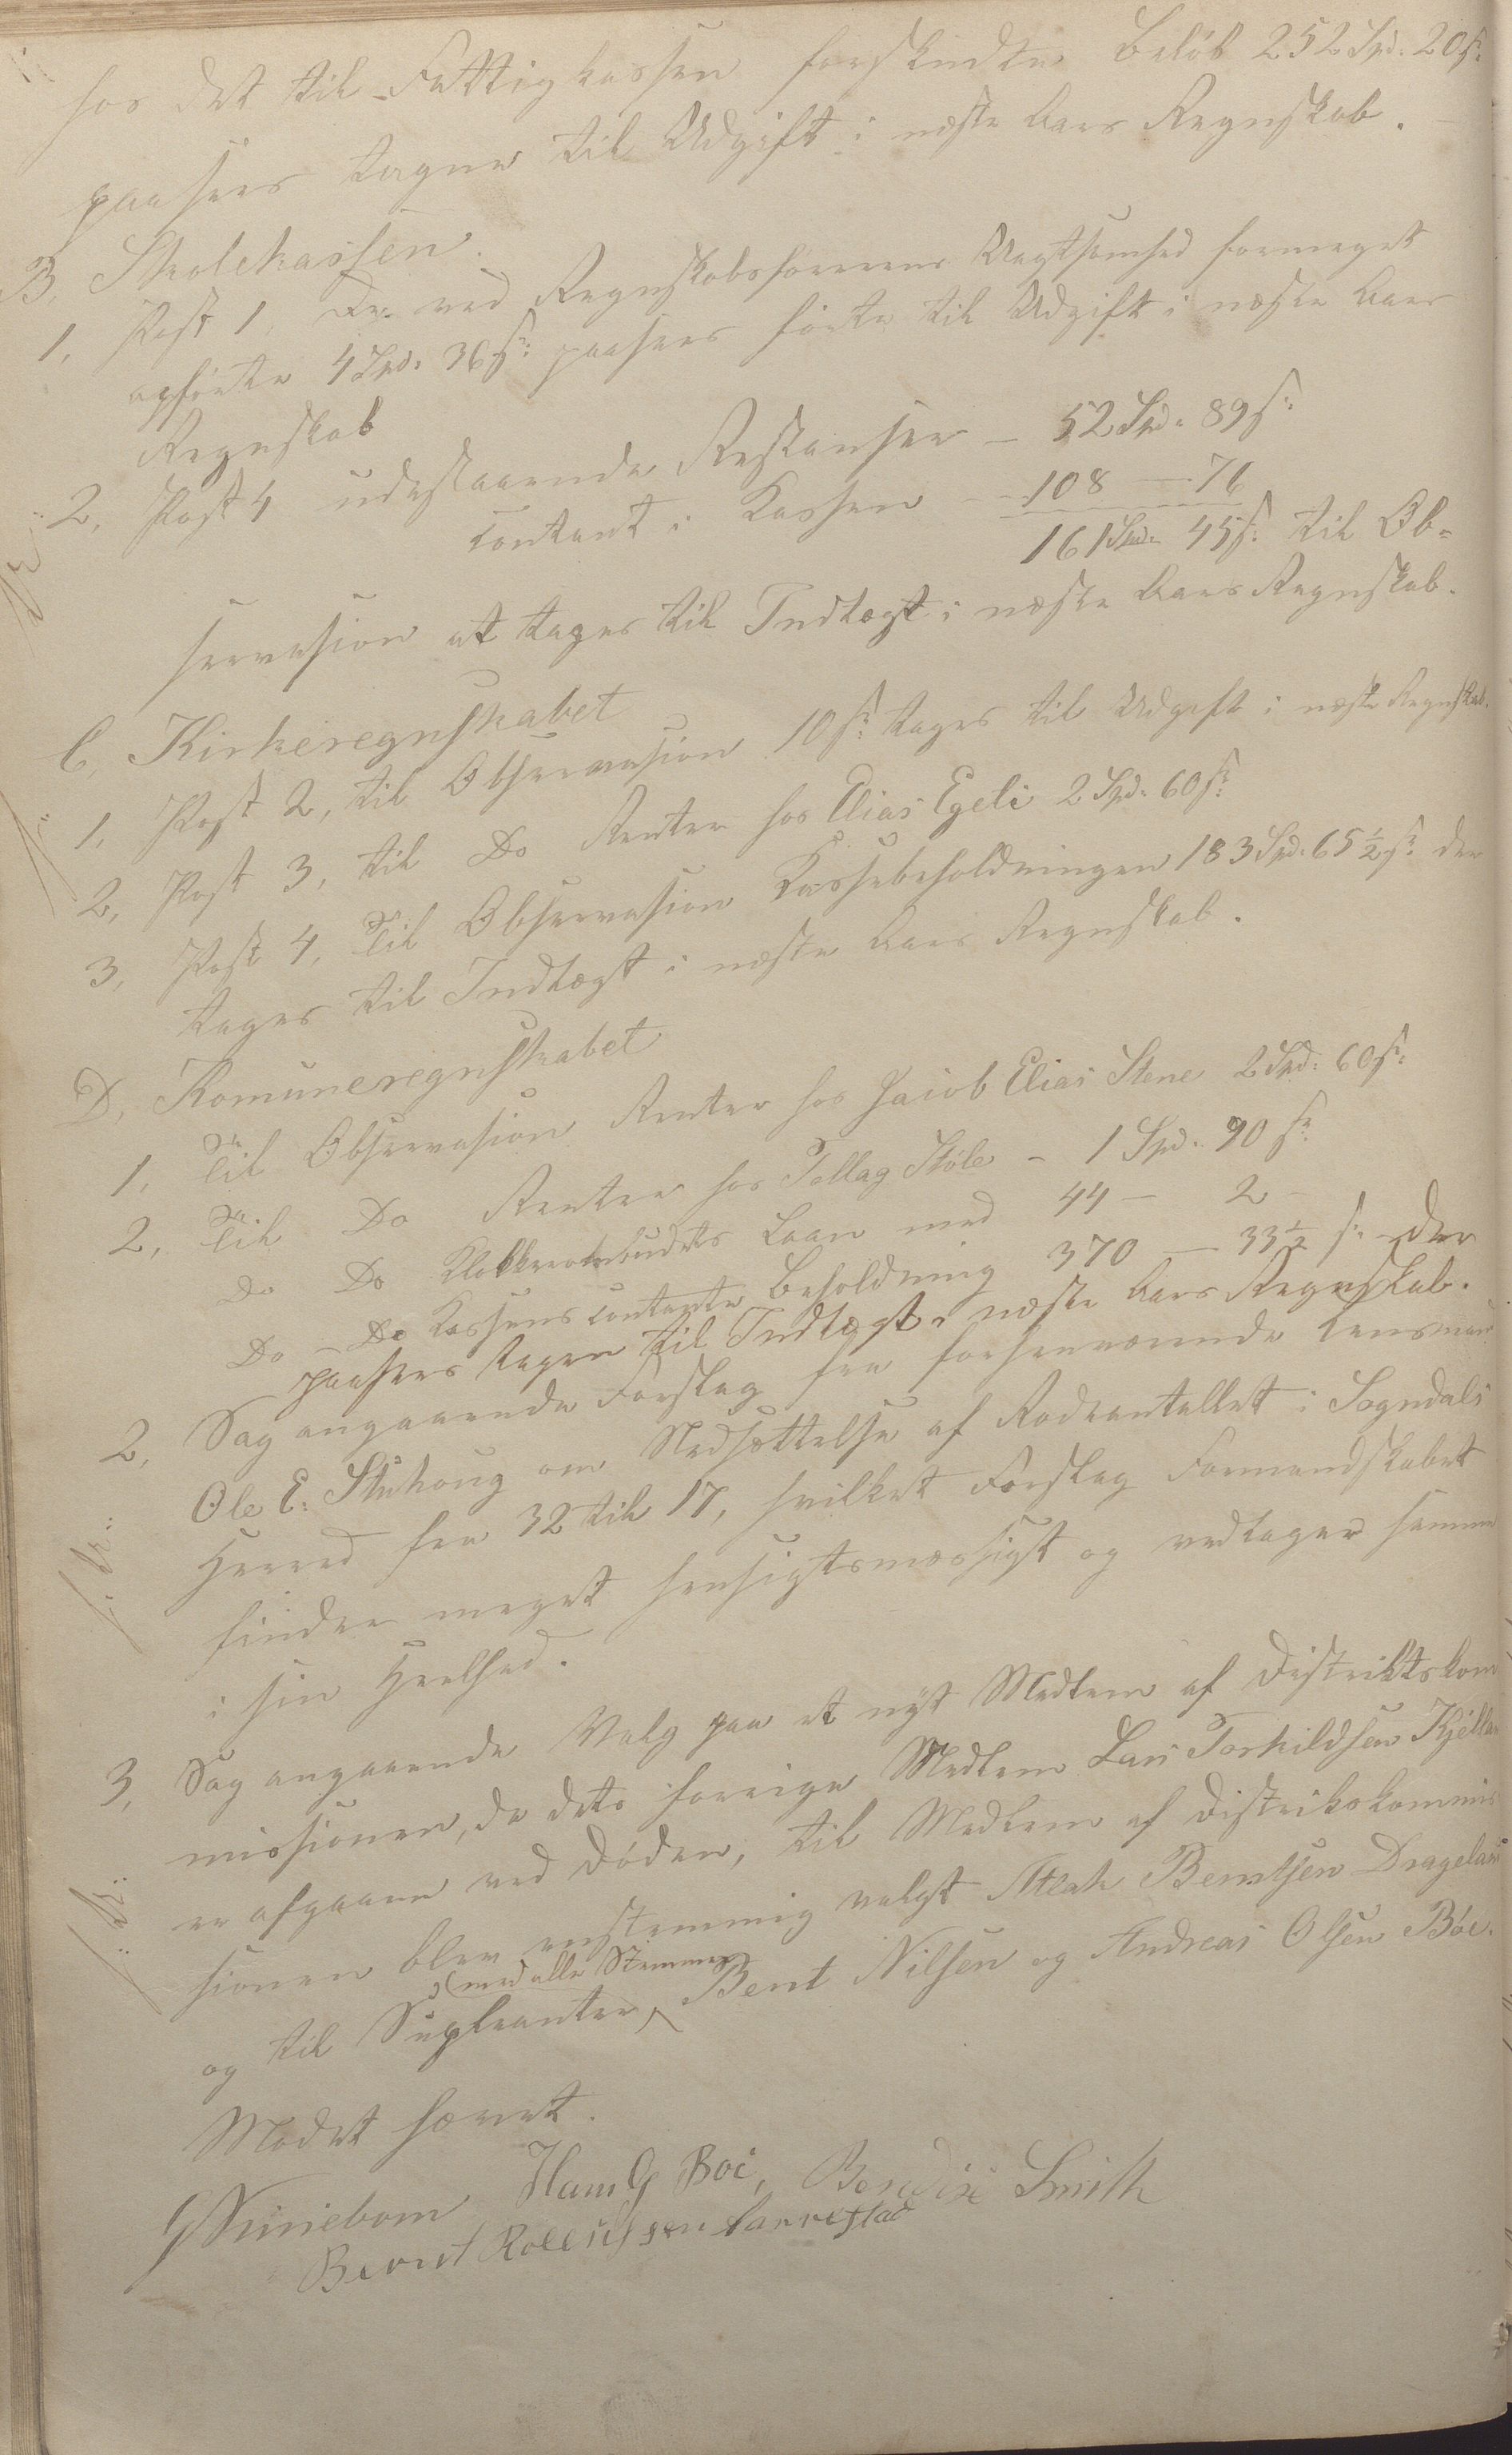 hos det til Fattigkassen forskudte Beløb 252 Spd: 20 s:
paasees tagne til Udgift i næste Aars Regnskab.
B, Skolekassen.
1, Post 1, De ved Regnskabsførerens Uagtsomhed formeget
opførte 4 Spd: 36 s: paasees førte til Udgift i næste Aars
Regnskab
2, Post 4 udestaaende Restanser – 52 Spd: 89 s:
contant i Kassen – 108 – 76
161 Spd: 45 s: til Ob-
servasion at tages til Indtægt i næste Aars Regnskab.
C, Kirkeregnskabet
1, Post 2, til Observasion 10 s: tages til Udgift i næste Regnskab.
2, Post 3, til Do Renter hos Elias Egeli 2 Spd: 60 s:
3, Post 4, Til Observasion Kassebeholdningen 183 Spd: 65½ s: der
tages til Indtægt i næste Aars Regnskab.
D, Komuneregnskabet
1, Til Observasion Renter hos Jacob Elias Stene 2 Spd: 60 s:
2, Til Do Renter hos Tollag Støle – 1 Spd: 90 s:
Do Do Klokkerombudets Laan med 44 – 2 –
Do – Do Kassens contante Beholdning 370 – 33½ s: der
paasees tagen til Indtægt i næste Aars Regnskab.
2, Sag angaaende Forslag fra forhenværende Lensmand
Ole E: Stuhoug om Nedsættelse af Rodeantallet i Sogndals
Herred fra 32 til 17, hvilket Forslag Formandskabet
finder meget hensigtsmæssigt og vedtager samme
i sin Heelhed.
3, Sag angaaende Valg paa et nyt Medlem af Distriktskom
missionen, da dets forrige Medlem Lars Torkildsen Kjelland
er afgaaen ved Døden, til Medlem af Distrikskommis
sionen blev enstemmig valgt Atlak Berntsen Drageland
og til Supleanter (med alle Stemmer) Bent Nilsen og Andreas Olsen Böe.
Mødet hævet.
Hans G Böe, Bendix Smith
Berent Rasmussen Aarrestad